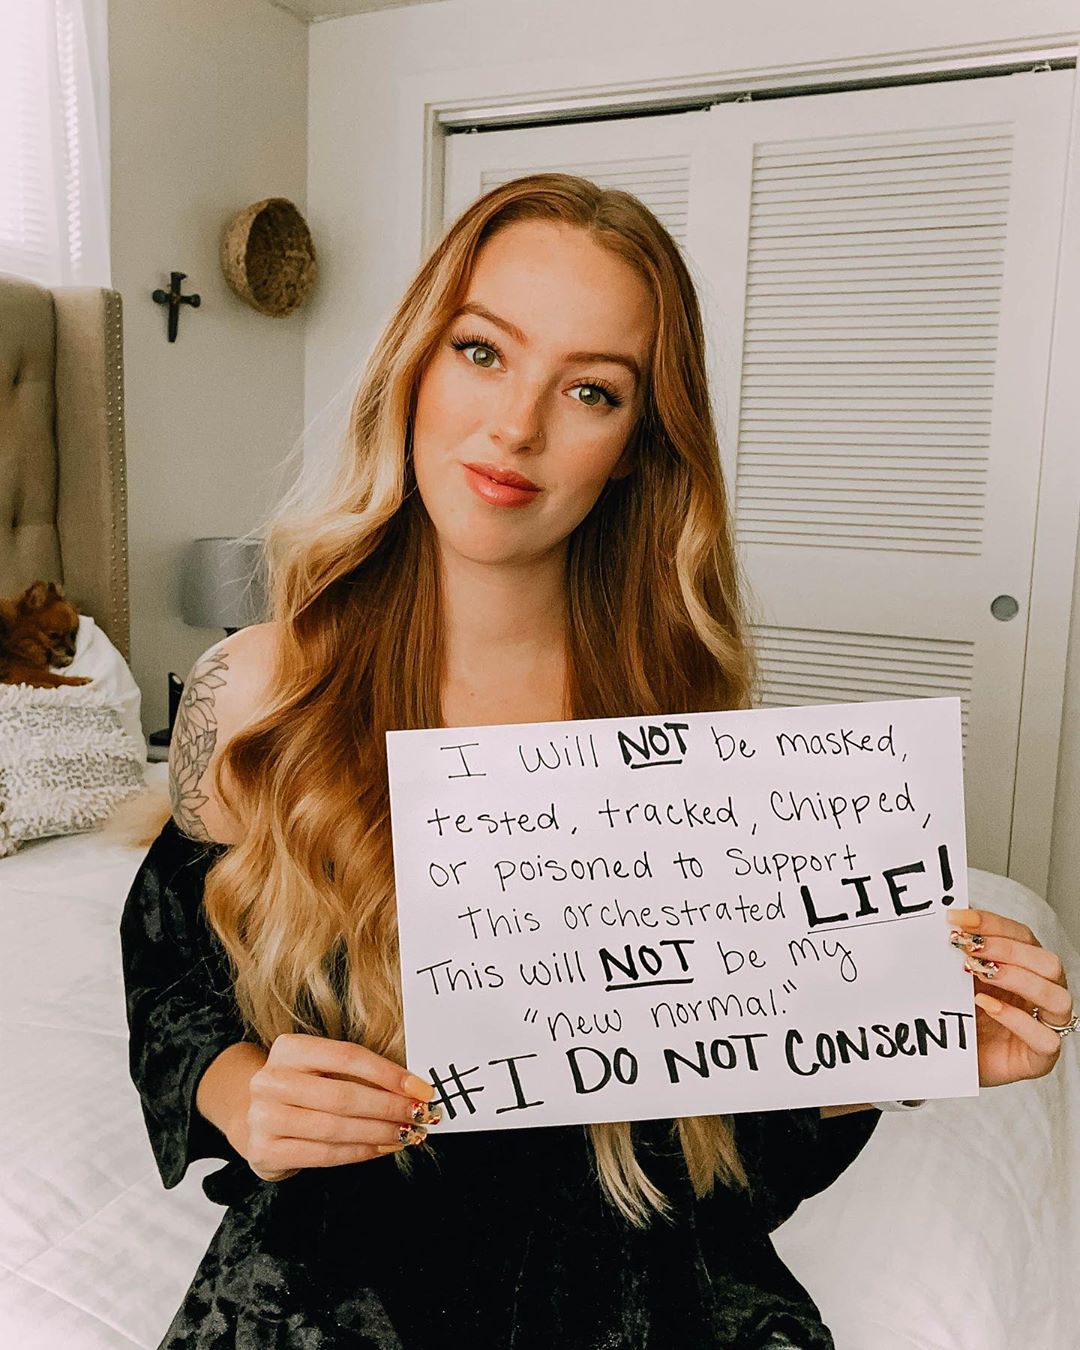 I will NOT be masked,
tested, tracked, Chipped,
or poisoned to Support
This orchestrated LIE!
This will NOT be my
"new normal."
#I DO NOT CONSENT